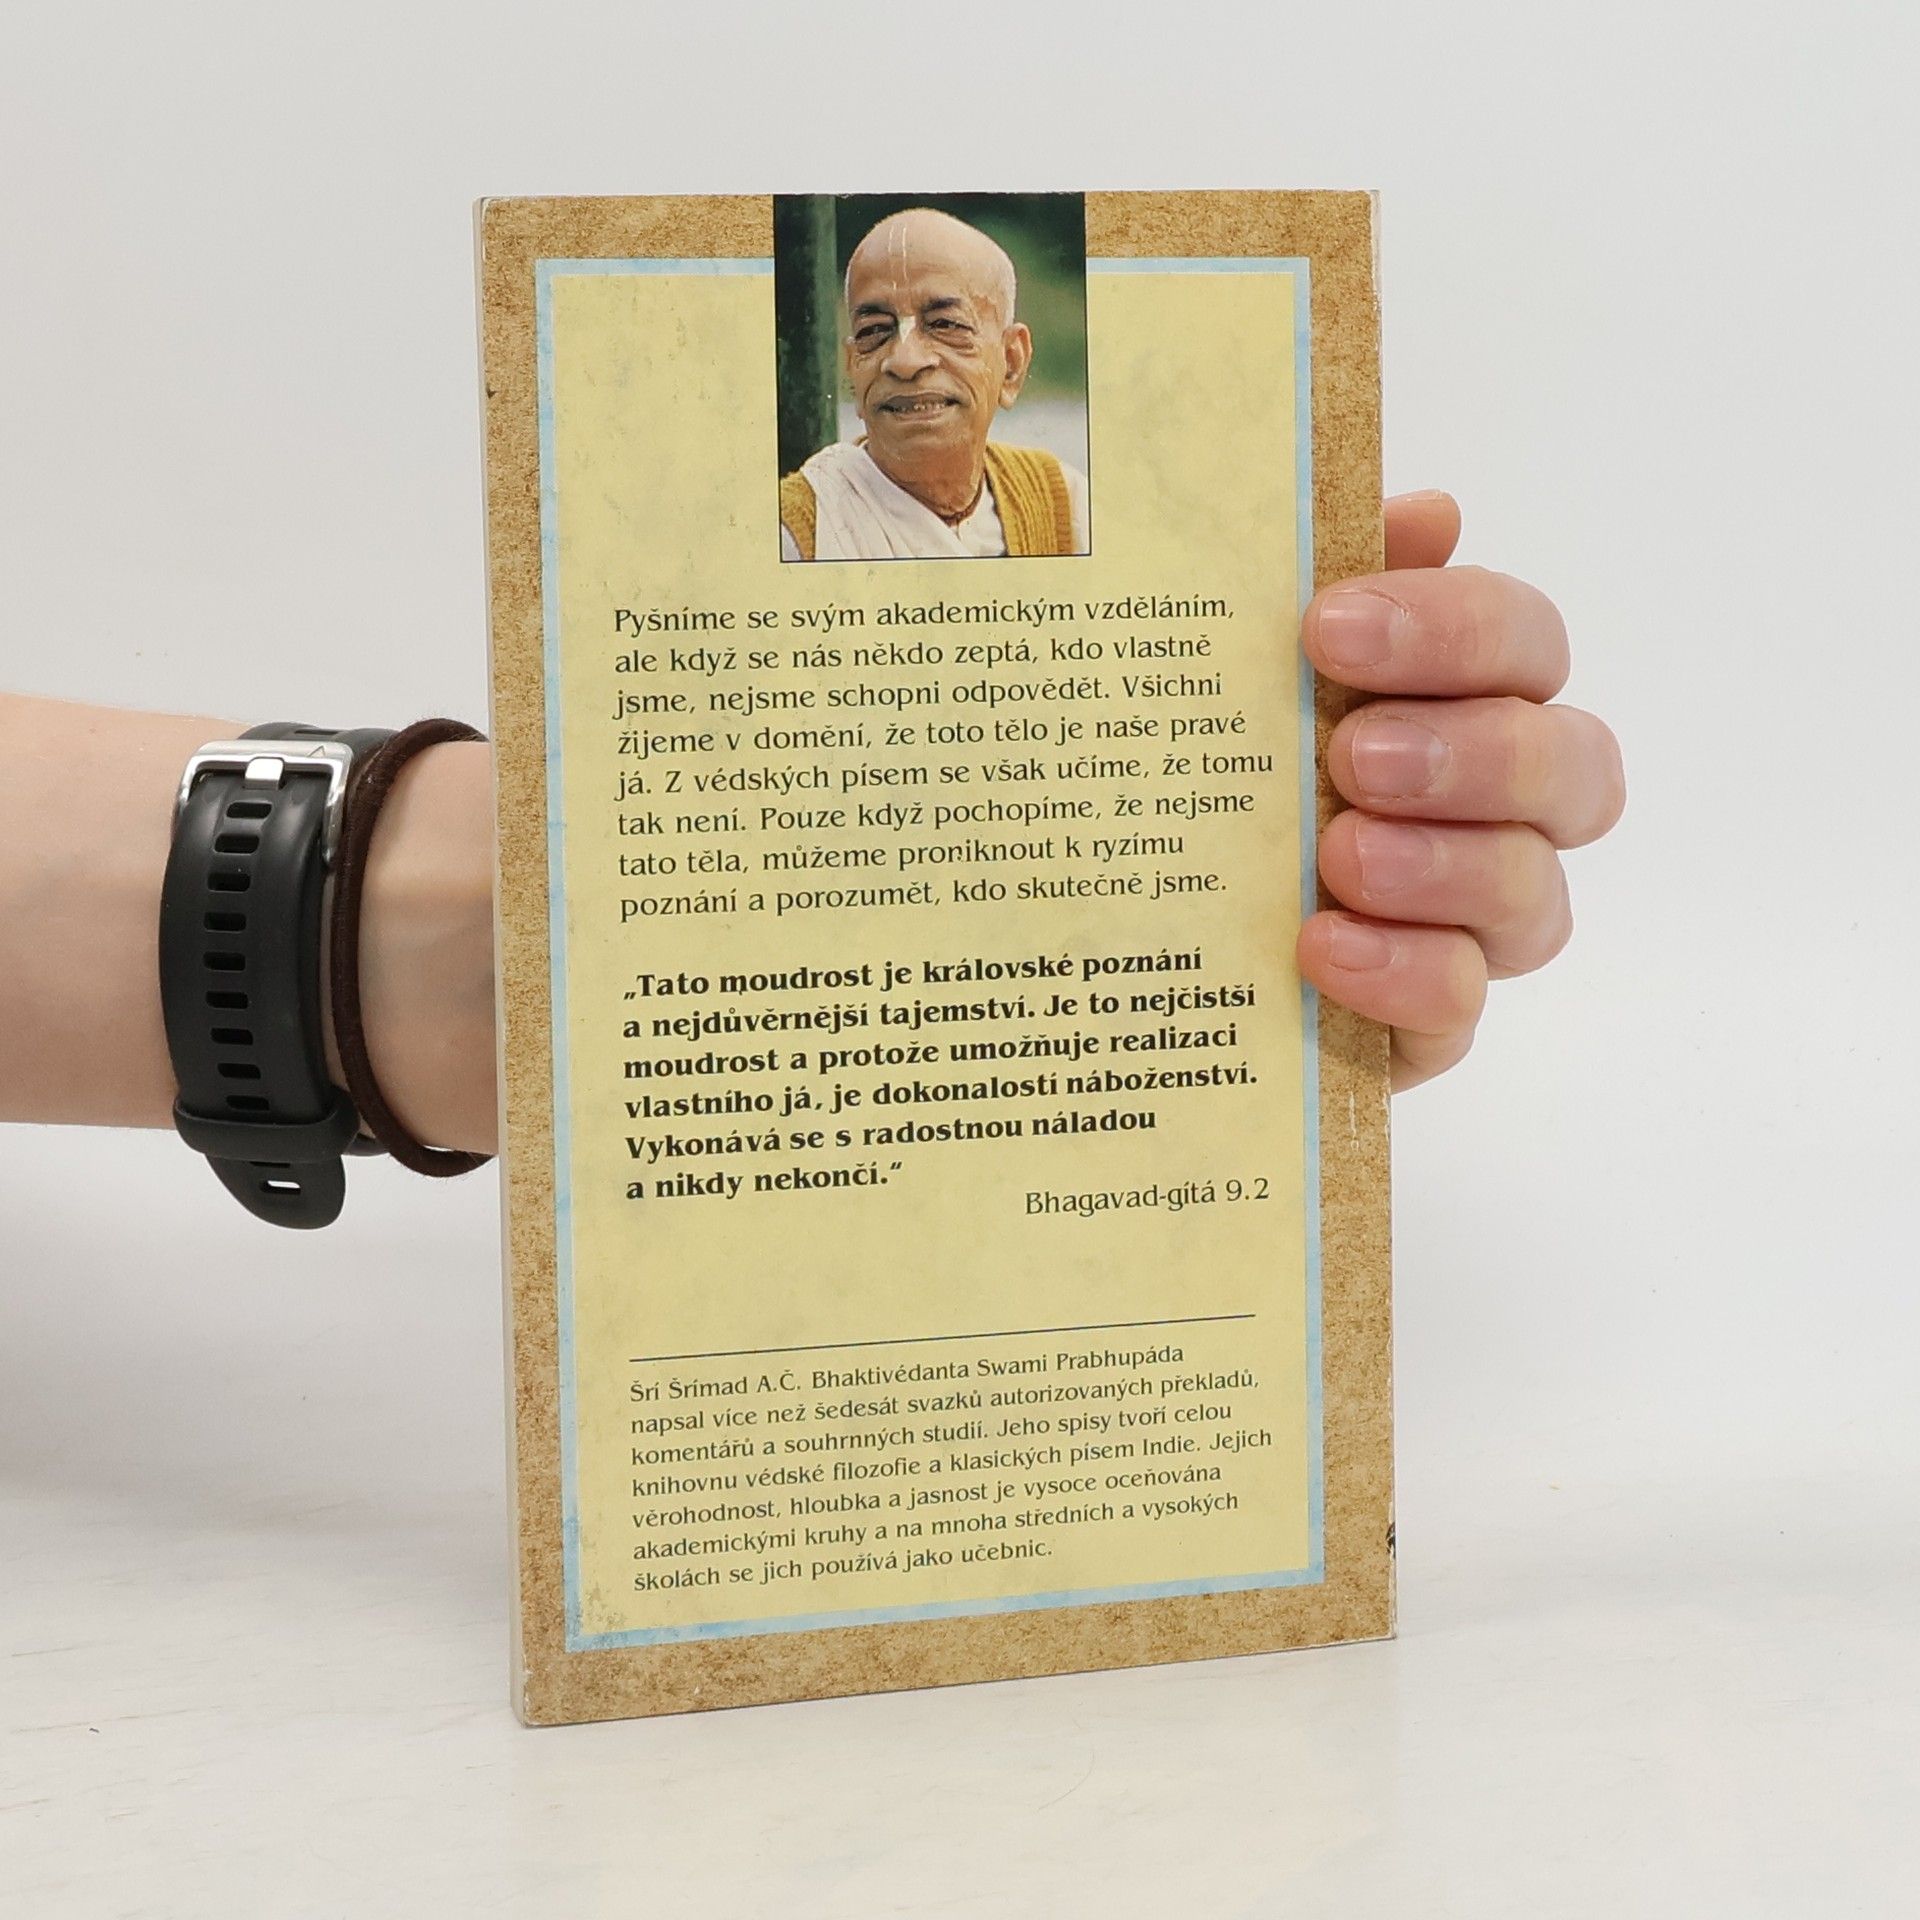 Pyšníme se svým akademickým vzděláním,
ale když se nás někdo zeptá, kdo vlastně
jsme, nejsme schopni odpovědět. Všichni
žijeme v domění, že toto tělo je naše pravé
já. Z védských písem se však učíme, že tomu
tak není. Pouze když pochopíme, že nejsme
tato těla, můžeme proniknout k ryzímu
poznání a porozumět, kdo skutečně jsme.
„Tato moudrost je královské poznání
a nejdůvěrnější tajemství. Je to nejčistší
moudrost a protože umožňuje realizaci
vlastního já, je dokonalostí náboženství.
Vykonává se s radostnou náladou
a nikdy nekončí.“
Bhagavad-gítá 9.2
Šrí Šrímad A.Č. Bhaktivédanta Swami Prabhupáda
napsal více než šedesát svazků autorizovaných překladů,
komentářů a souhrnných studií. Jeho spisy tvoří celou
knihovnu védské filozofie a klasických písem Indie. Jejich
věrohodnost, hloubka a jasnost je vysoce oceňována
akademickými kruhy a na mnoha středních a vysokých
školách se jich používá jako učebnic.